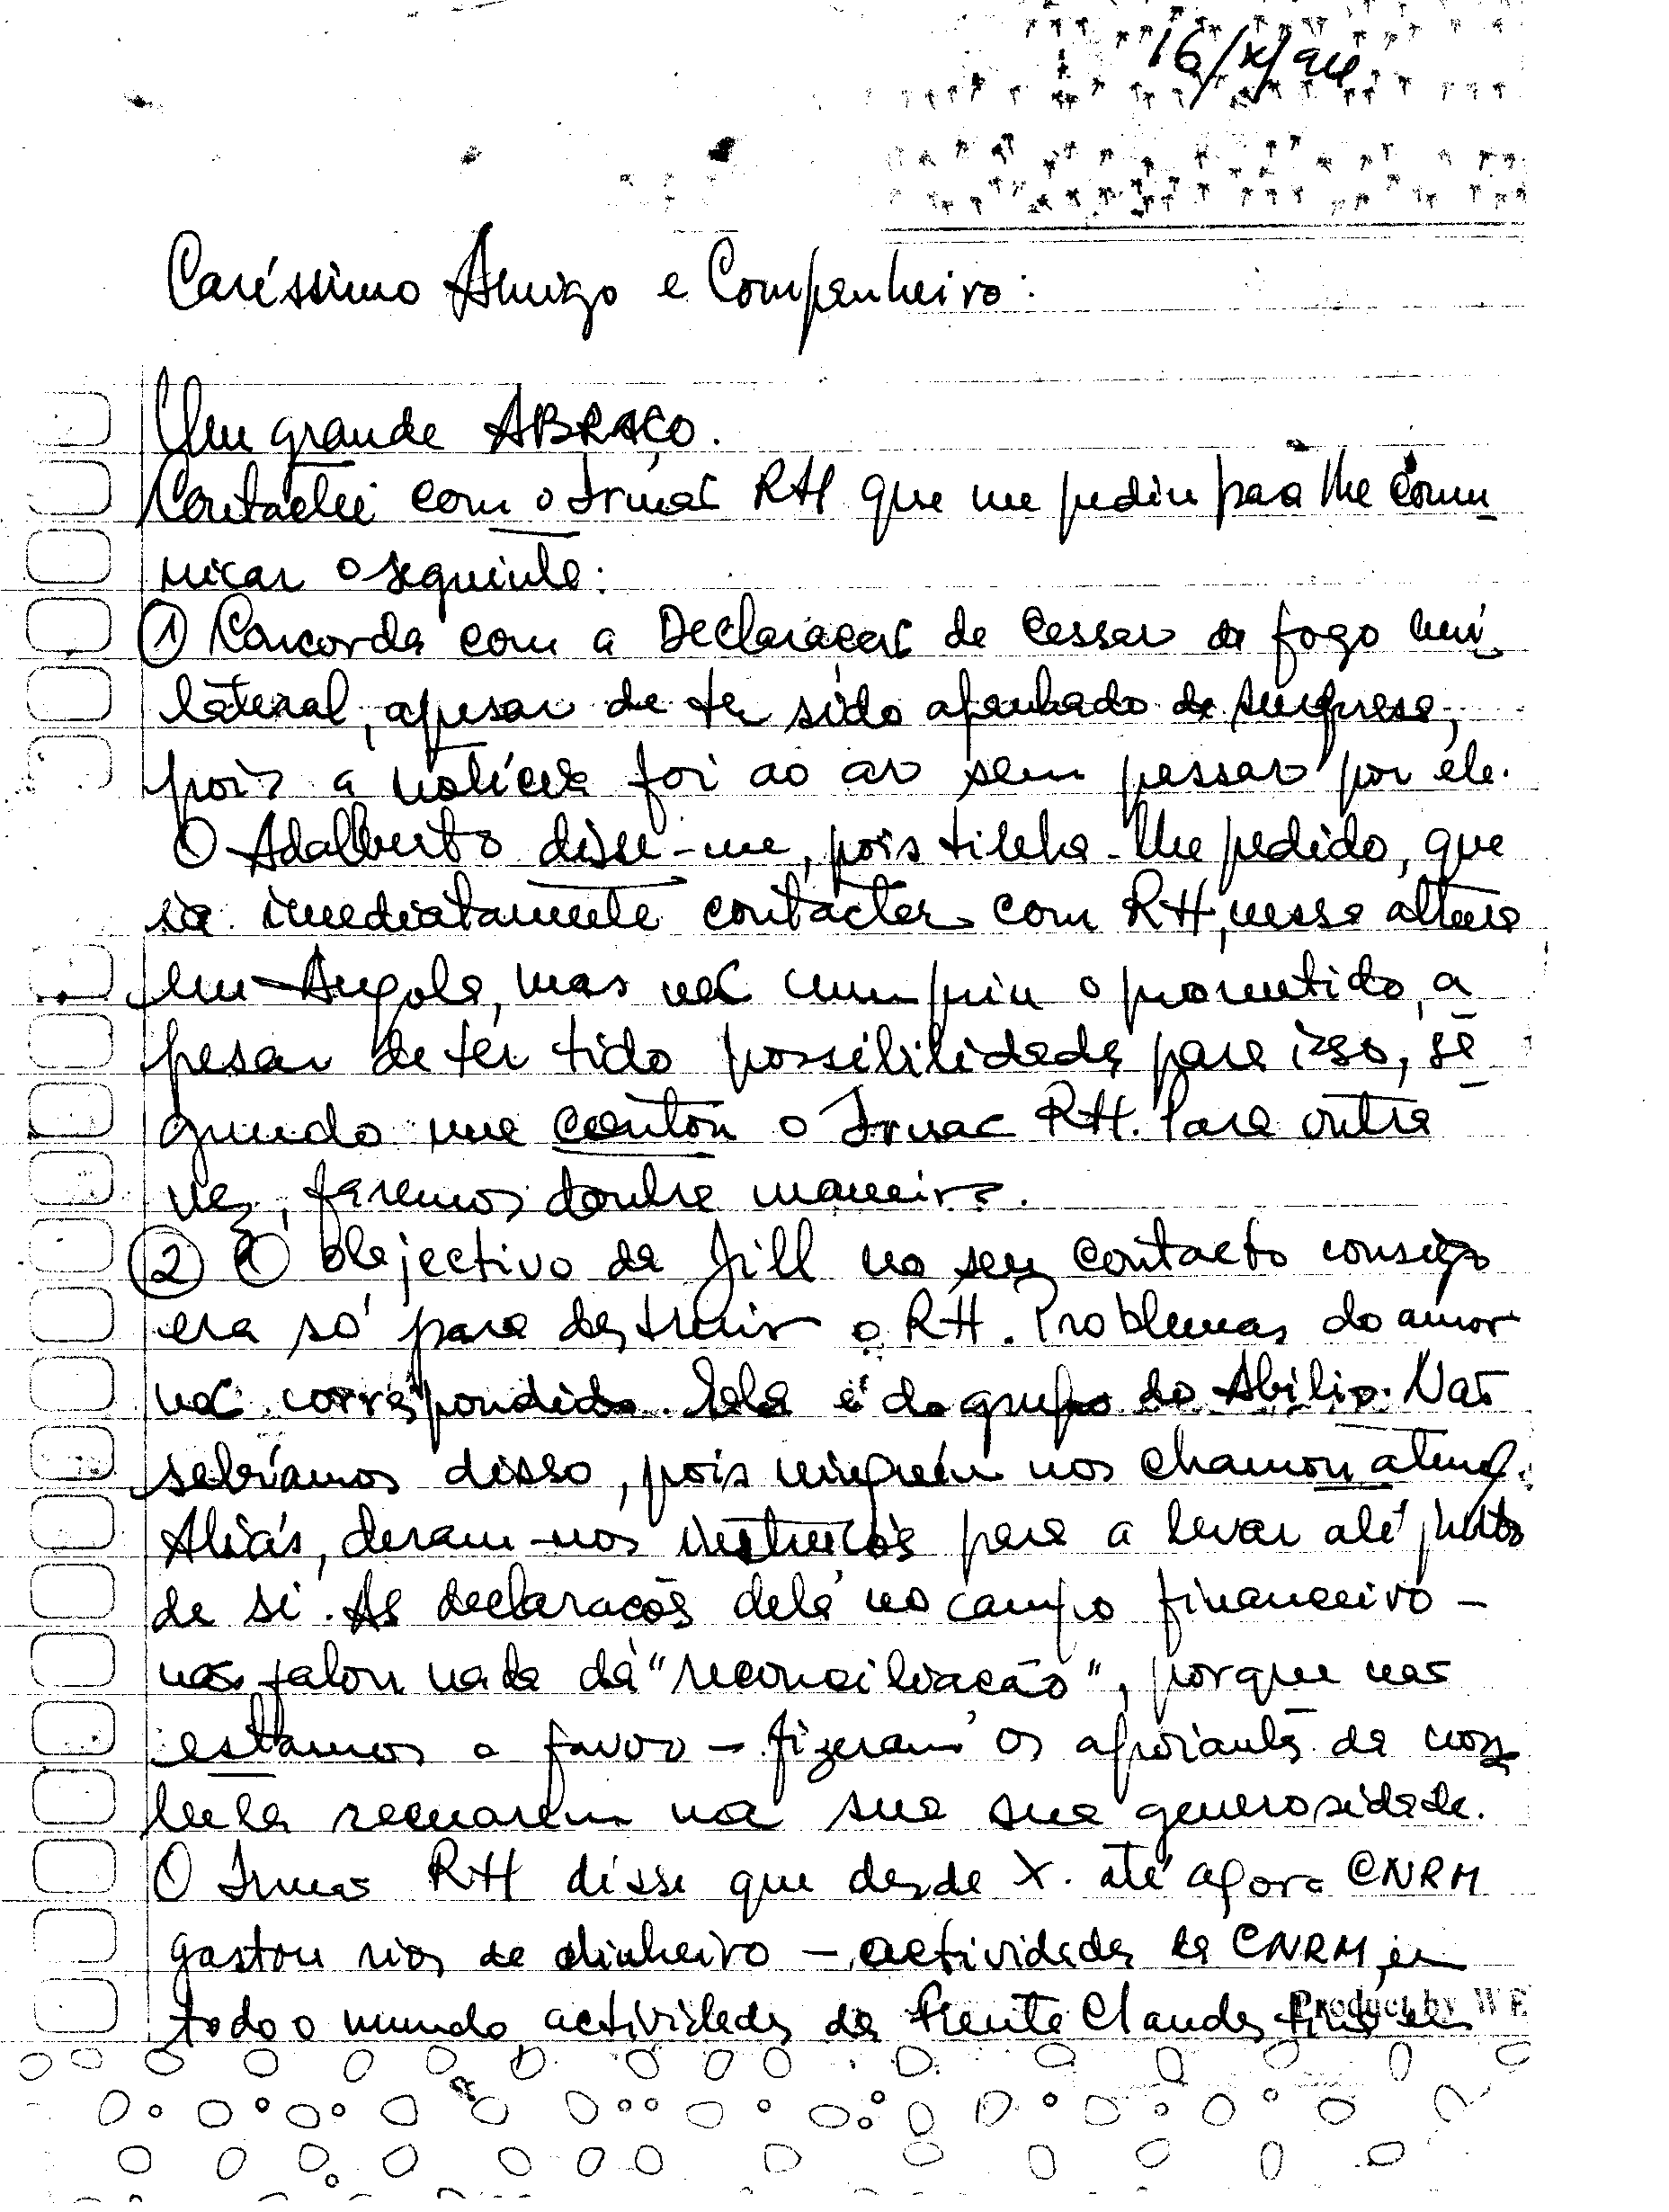 16/X/94
Caríssimo Amigo e Companheiro:
Um grande ABRAÇO.
Contactei com o Irmão RH que me pediu para lhe comu
nicar o seguinte:
① Concorda com a Declaração de Cessar de fogo uni
lateral, apesar de ter sido apanhado de surpresa,
pois a notícia foi ao ar sem passar por ele.
O Adalberto disse-me, pois tinha-lhe pedido, que
ia imediatamente contactar com RH, nessa altura
em Angola, mas não cumpriu o prometido, a
pesar de ter tido possibilidade para isso, se
gundo me contou o Irmão RH. Para outra
vez, faremos doutra maneira.
② O objectivo da Jill no seu contacto consigo
era só para destruir o RH. Problemas do amor
não correspondido. Ela é do grupo do Abílio. Não
sabíamos disso, pois ninguém nos chamou atenç.
Aliás, deram-nos instruções para a levar até junto
de si. As declarações dela no campo financeiro –
não falou nada da "reconciliação", porque não
estamos a favor – fizeram os apoiantes da nos
sa luta recuarem na sua sua generosidade.
O Irmão RH disse que desde X. até agora CNRM
gastou rios de dinheiro – actividades da CNRM, em
todo o mundo, actividades da Frente Clandestina em
Product by WE